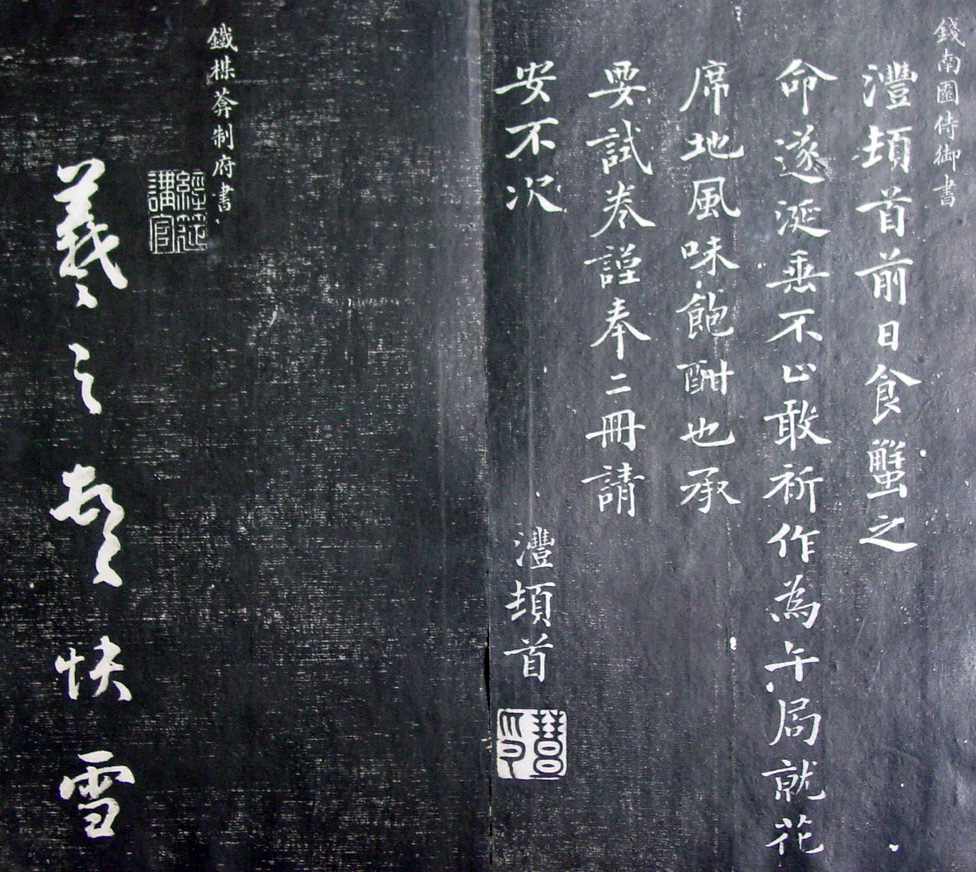 錢南園侍御書
灃頓首前日食蟹之
命遂涎垂不止敢祈作為午局就花
席地風味飽酣也承
要試卷謹奉二冊請
安不次
灃頓首
鐵楳葊制府書
經筵講官
羲之頓首快雪